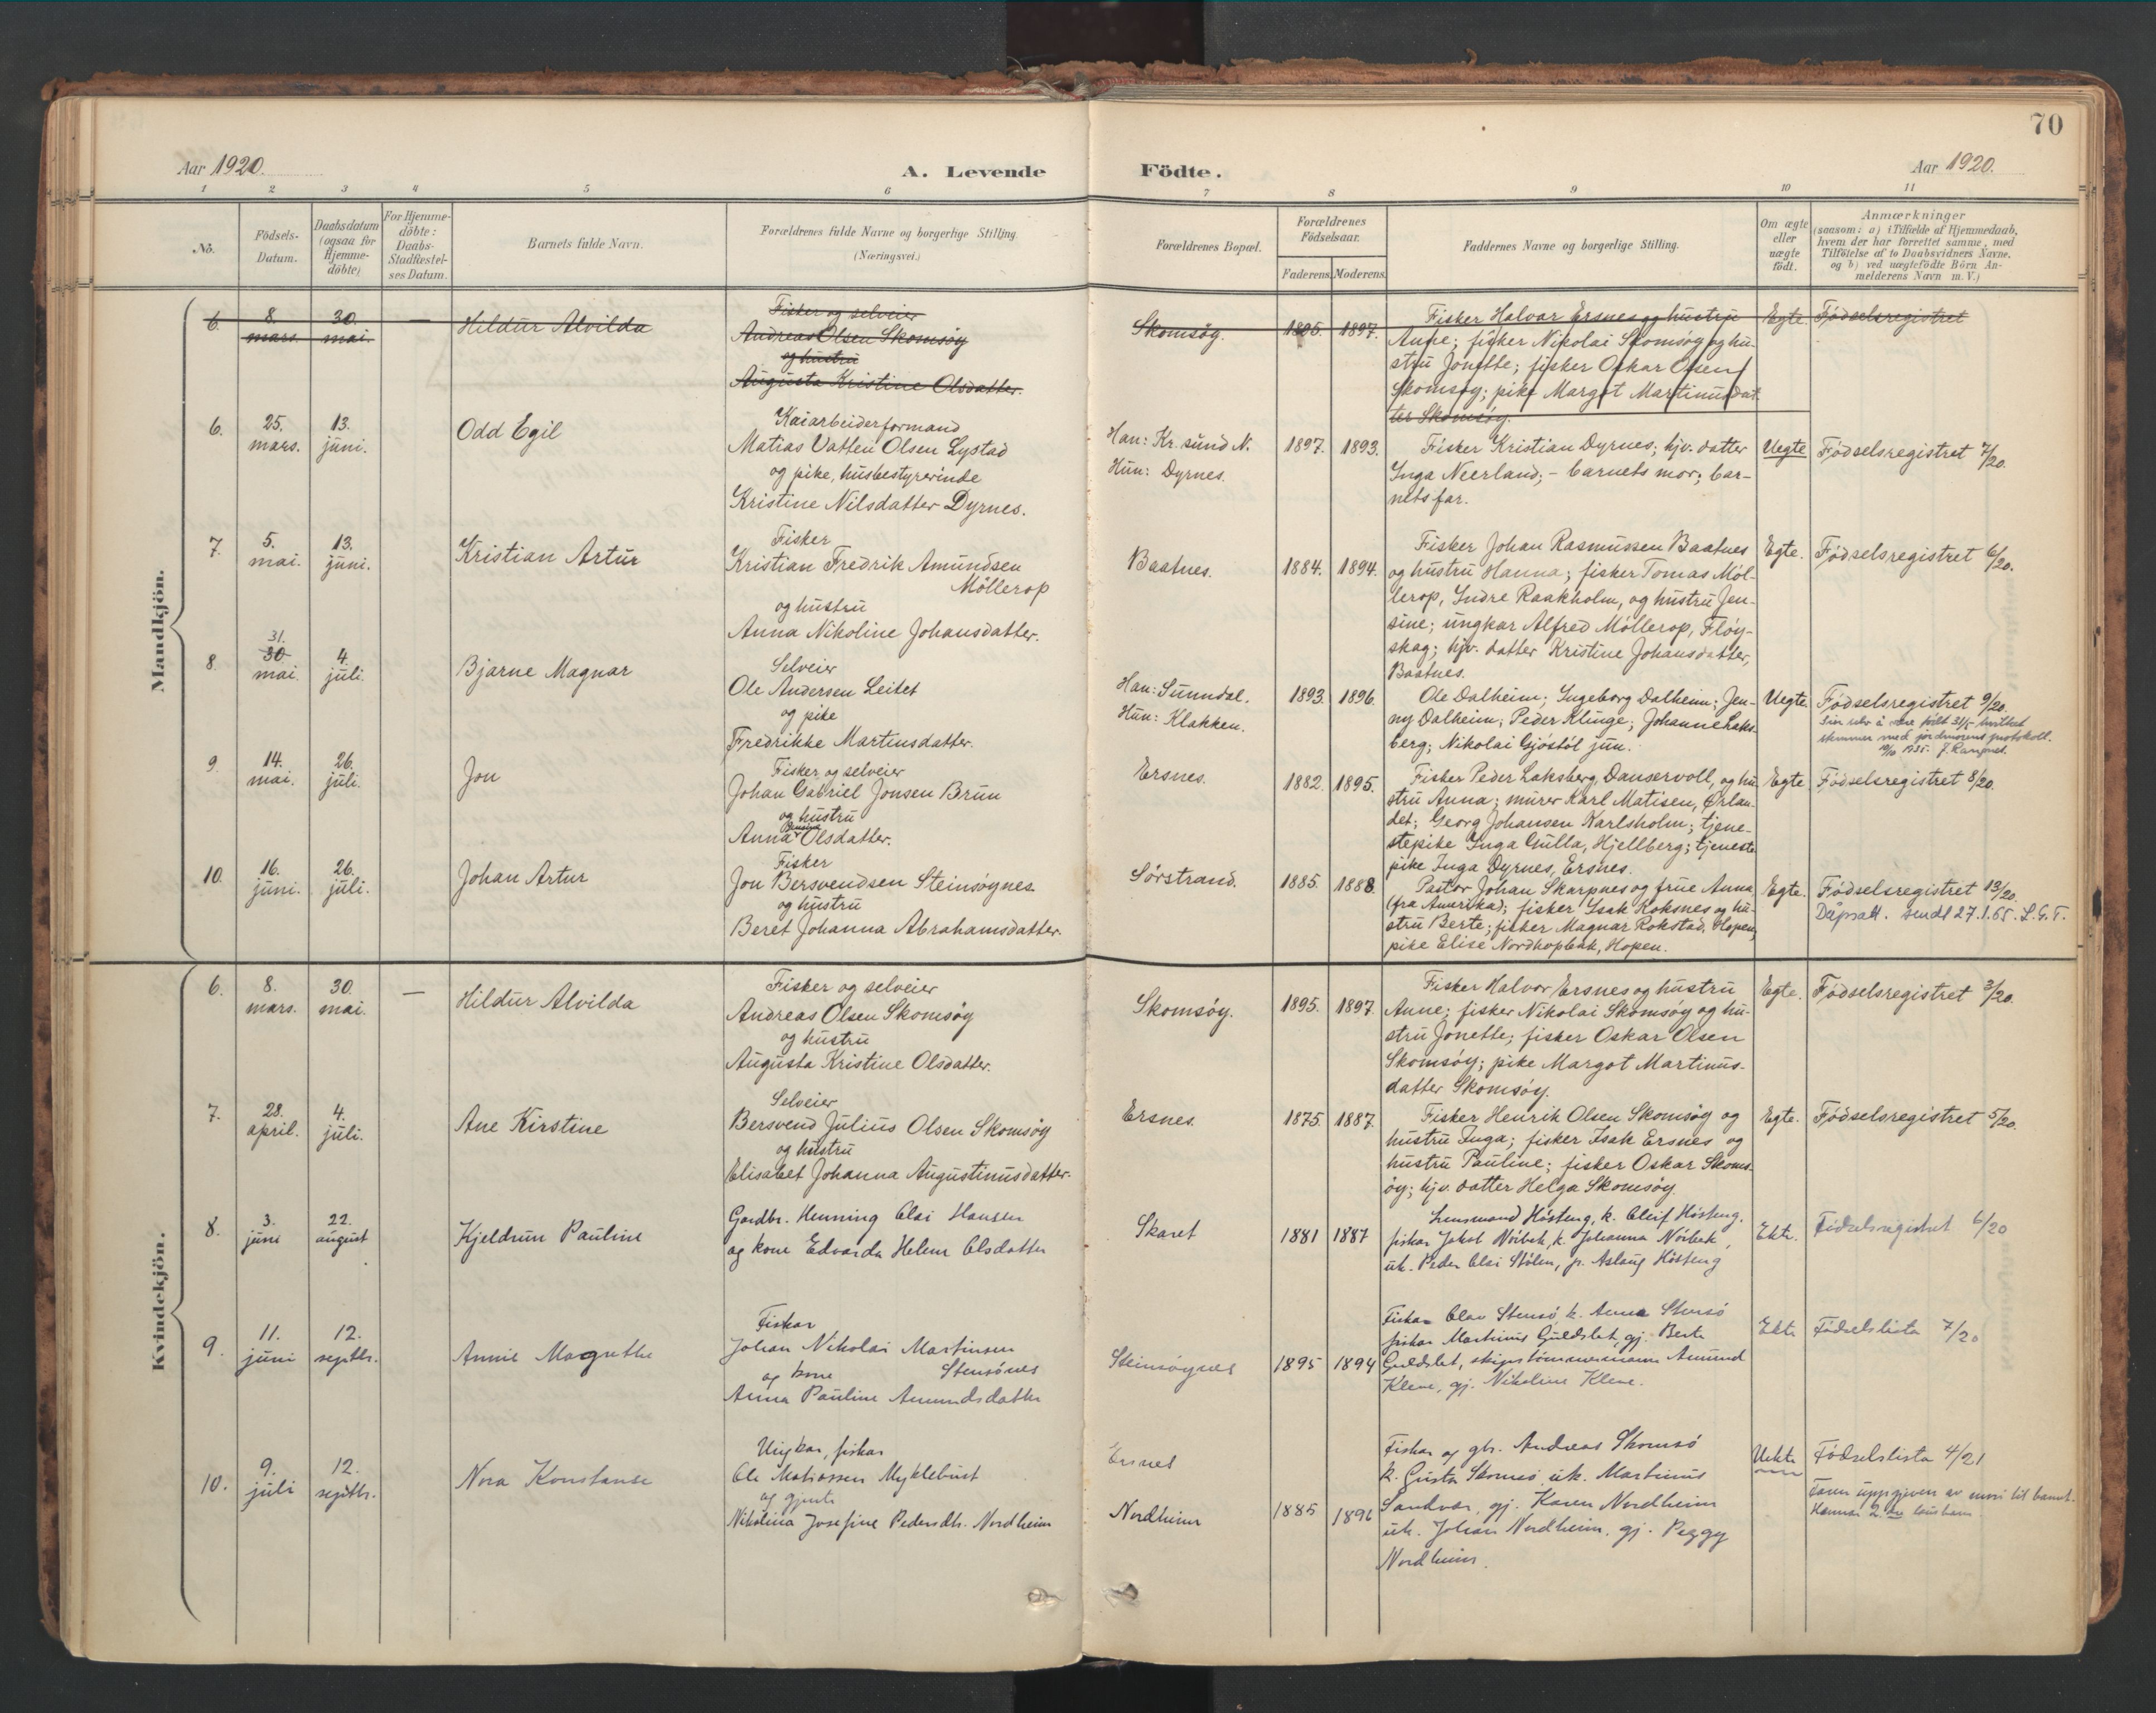 70
Aar 1920.
A. Levende Födte.
Aar 1920.
1 2 3 4 5 6 7 8 9 10 11
No.
Födsels-
Datum.
Daabsdatum
(ogsaa for
Hjemme-
döbte)
For Hjemme-
döbte:
Daabs-
Stadfæstel-
ses Datum.
Barnets fulde Navn.
Forældrenes fulde Navne og borgerlige Stilling.
(Næringsvei.)
Forældrenes Bopæl.
Forældrenes
Födselsaar.
Faderens. Moderens.
Faddernes Navne og borgerlige Stilling.
Om ægte
eller
uægte
födt.
Anmærkninger
(saasom: a) i Tilfælde af Hjemmedaab,
hvem der har forrettet samme, med
Tilföielse af to Daabsvidners Navne,
og b) ved uægtefödte Börn An-
melderens Navn m. V.)
Mandkjön.
6. 8. mars. 30. mai. — Hildur Alvilda
Fisker og selveier
Andreas Olsen Skomsøy
og hustru
Augusta Kristine Olsdatter.
Skomsøy. 1895. 1897.
Fisker Halvor Ersnes og hustru
Anne; fisker Nikolai Skomsøy og hu-
stru Jonette; fisker Oskar Olsen
Skomsøy; pike Margot Martinusdat-
ter Skomsøy.
Egte. Fødselsregistret
6. 25. mars. 13. juni. Odd Egil
Kaiarbeiderformand
Matias Vatten Olsen Lystad
og pike, husbestyrerinde
Kristine Nilsdatter Dyrnes.
Han: Kr.sund N.
Hun: Dyrnes.
1897. 1893.
Fisker Kristian Dyrnes; hjv. datter
Inga Neerland; - barnets mor; bar-
nets far.
Uegte Fødselsregistret 7/20.
7. 5. mai. 13. juni. Kristian Artur
Fisker
Kristian Fredrik Amundsen
Möllerop
og hustru
Anna Nikoline Johansdatter.
Baatnes. 1884. 1894.
Fisker Johan Rasmussen Baatnes
og hustru Hanna; fisker Tomas Möl-
lerop, Indre Raakholm, og hustru Jen-
sine; ungkar Alfred Möllerop, Fløy-
skag; hjv. datter Kristine Johansdatter,
Baatnes.
Egte. Fødselsregistret 6/20.
8. 31. 30 mai. 4. juli. Bjarne Magnar
Selveier
Ole Andersen Leitet
og pike
Fredrikke Martinsdatter.
Han: Sunndal.
Hun: Klakken.
1893. 1896.
Ole Dalheim; Ingeborg Dalheim; Jen-
ny Dalheim; Peder Klinge; Johanne Laks-
berg; Nikolai Gjöstöl jun.
Uegte. Fødselsregistret 9/20.
Sier selv å være født 31/5 hvilket
stemmer med jordmorens protokoll.
9. 14. mai. 26. juli. Jon
Fisker og selveier
Johan Gabriel Jonsen Brun
og hustru
Anna Olsdatter.
Ersnes. 1882. 1895.
Fisker Peder Laksberg, Dauservoll, og hu-
stru Anna; murer Karl Matisen, Ørlan-
det; Georg Johansen Karlsholm; tjene-
stepike Inga Gulla, Hjellberg; tjeneste-
pike Inga Dyrnes, Ersnes.
Egte Fødselsregistret 8/20.
10. 16. juni. 26. juli. Johan Artur
Fisker
Jon Bersvendsen Steinsøynes
og hustru
Beret Johanna Abrahamsdatter.
Sörstrand. 1885. 1888.
Pastor Johan Skarpnes og frue Anna
(fra Amerika); fisker Isak Roksnes og hu-
stru Berte; fisker Magnar Rokstad, Hopen;
pike Elise Nordhopbak, Hopen.
Egte. Fødselsregistret 13/20.
Dåpsatt. sendt 27.1.65. L.G.T.
Kvindekjön.
6. 8. mars. 30. mai. — Hildur Alvilda
Fisker og selveier
Andreas Olsen Skomsøy
og hustru
Augusta Kristine Olsdatter.
Skomsøy. 1895. 1897.
Fisker Halvor Ersnes og hustru
Anne; fisker Nikolai Skomsøy og hu-
stru Jonette; fisker Oskar Olsen
Skomsøy; pike Margot Martinus-
datter Skomsøy.
Egte. Fødselsregistret 3/20.
7. 28. april. 4. juli. Ane Kirstine
Selveier
Bersvend Julius Olsen Skomsøy
og hustru
Elisabet Johanna Augustinusdatter.
Ersnes. 1875. 1887.
Fisker Henrik Olsen Skomsøy og
hustru Inga; fisker Isak Ersnes og
hustru Pauline; fisker Oskar Skoms-
øy; hjv. datter Helga Skomsøy.
Egte. Fødselsregistret 5/20.
8. 3. juni 22. august Kjeldrun Pauline
Gardbr. Henning Olai Hansen
og kone Edvarda Helene Olsdatter
Skaret 1881 1887
Lensmand Hösteng, k. Oleif Hösteng,
fiskar Jakob Nöibak, k. Johanna Nöibak,
uk. Peder Olai Stölen, p. Aslaug Hösteng
Ekte. Födselsregistret 6/20
9. 11. juni 12. septbr. Annie Magrethe
Fiskar
Johan Nikolai Martinsen
og kone Stensönes
Anna Pauline Amundsdatter
Steinsöynes 1895 1894
Fiskar Olav Stensö, k. Anna Stensö
fiskar Martinus Guldslet, gj. Berte
Guldslet, skipstömmermann Amund
Kleve, gj. Nikoline Kleve.
Ekte Födselslista 7/20
10. 9. juli 12. septbr. Nora Konstanse
Ungkar, fiskar
Ole Matiassen Myklebust
og gjente
Nikolina Josefine Pedersdtr. Nordheim
Ersnes
Nordheim
1885 1896
Fiskar og gbr. Andreas Skomsö
k. Gusta Skomsö uk. Martinus
Sandvar, gj. Karen Nordheim
uk. Johan Nordheim, gj. Peggy
Nordheim.
Uekte Födselslista 4/21
Faren uppgjeven av mori til barnet.
Hennar 2. dre lausbarn